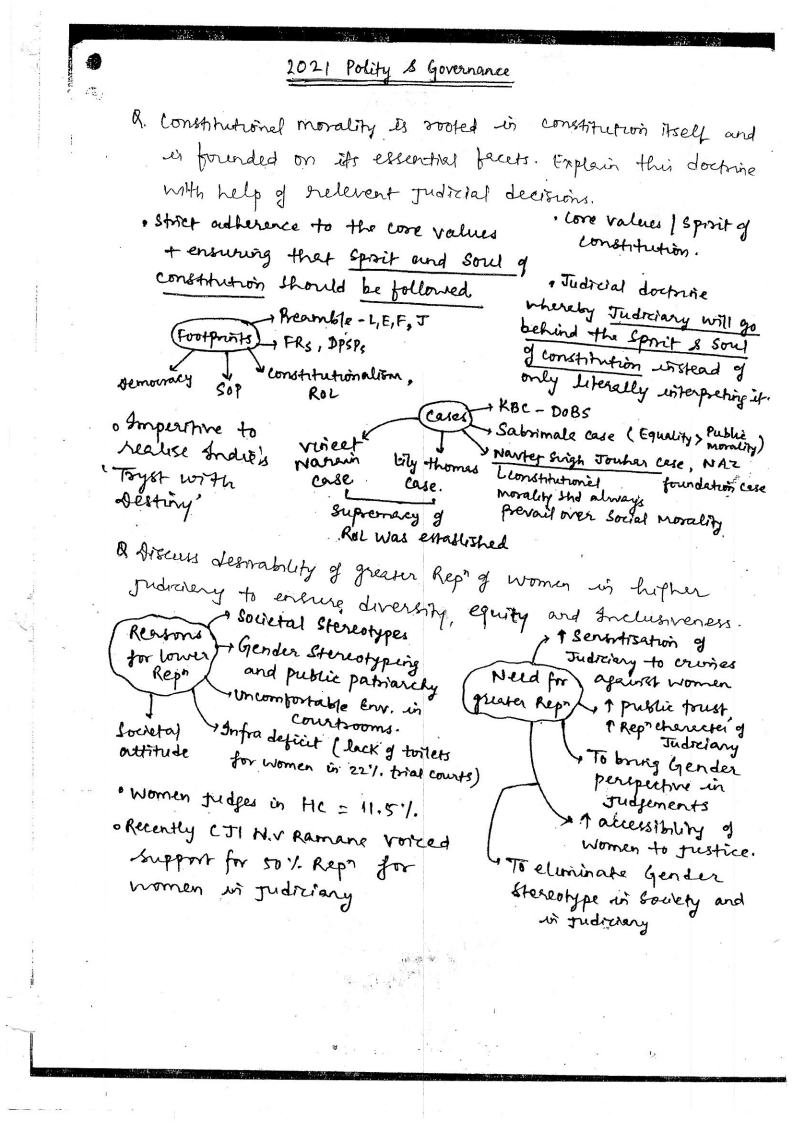 2021 Polity & Governance
Q. Constitutional morality is rooted in constitution itself and
is founded on its essential facets. Explain this doctrine
with help of relevent judicial decisions.
• Strict adherence to the core values
+ ensuring that Spirit and Soul of
constitution should be followed
• Core values / Spirit of
constitution.
• Judicial doctrine
whereby Judiciary will go
behind the Spirit & Soul
of constitution instead of
only literally interpreting it.
Footprints
Preamble - L, E, F, J
FRs, DPSPs
Constitutionalism,
ROL
SOP
Democracy
o Imperitive to
realise India's
'Tryst with
Destiny'
Cases
KBC - DOBS
Sabrimala case (Equality > Public
morality)
Navtej Singh Jouhar case, NAZ
foundation case
Constitutional
morality shd always
prevail over Social Morality.
Lily thomas
case.
Vineet
Narain
case
Supremacy of
ROL was established
Q Discuss desirability of greater Repⁿ of women in higher
judiciary to ensure diversity, equity and Inclusiveness.
Reasons
for lower
Repⁿ
Societal Stereotypes
Gender Stereotyping
and public patriarchy
Uncomfortable Env. in
courtrooms.
Infra deficit (lack of toilets
for women in 22% trial courts)
Societal
attitude
• Women judges in HC = 11.5%.
o Recently CJI N.V Ramana voiced
support for 50% Repⁿ for
women in judiciary
Need for
greater Repⁿ
↑ Sensitisation of
Judiciary to crimes
against women
↑ public trust,
↑ Repⁿ character of
Judiciary
To bring Gender
perspective in
Judgements
↑ accessibility of
women to justice.
To eliminate Gender
Stereotype in Society and
in judiciary